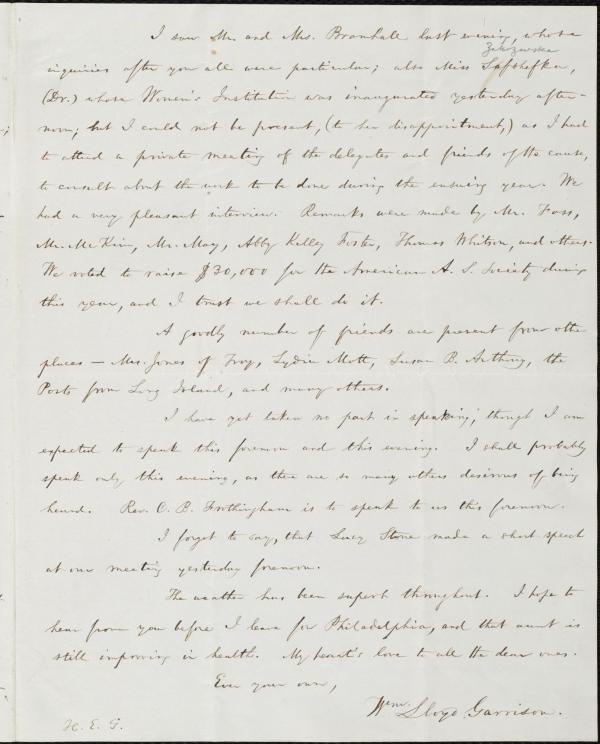 I saw Mr. and Mrs. Bramhall last evening, whose
Zakrzewska
inquiries after you all were particular; also Miss Safshefka,
(Dr.) whose Women's Institution was inaugurated yesterday after-
noon; but I could not be present, (to her disappointment,) as I had
to attend a private meeting of the delegates and friends of the cause,
to consult about the work to be done during the ensuing year. We
had a very pleasant interview. Remarks were made by Mr. Foss,
Mr. McKim, Mr. May, Abby Kelley Foster, Thomas Whitson, and others.
We voted to raise $30,000 for the American A. S. Society during
this year, and I trust we shall do it.
A goodly number of friends are present from other
places — Mrs. Jones of Troy, Lydia Mott, Susan B. Anthony, the
Posts from Long Island, and many others.
I have yet taken no part in speaking, though I am
expected to speak this forenoon and this evening. I shall probably
speak only this evening, as there are so many others desirous of being
heard. Rev. O. B. Frothingham is to speak to us this forenoon.
I forgot to say, that Lucy Stone made a short speech
at our meeting yesterday forenoon.
The weather has been superb throughout. I hope to
hear from you before I leave for Philadelphia, and that aunt is
still improving in health. My heart's love to all the dear ones.
Ever your own,
Wm. Lloyd Garrison.
H. E. G.